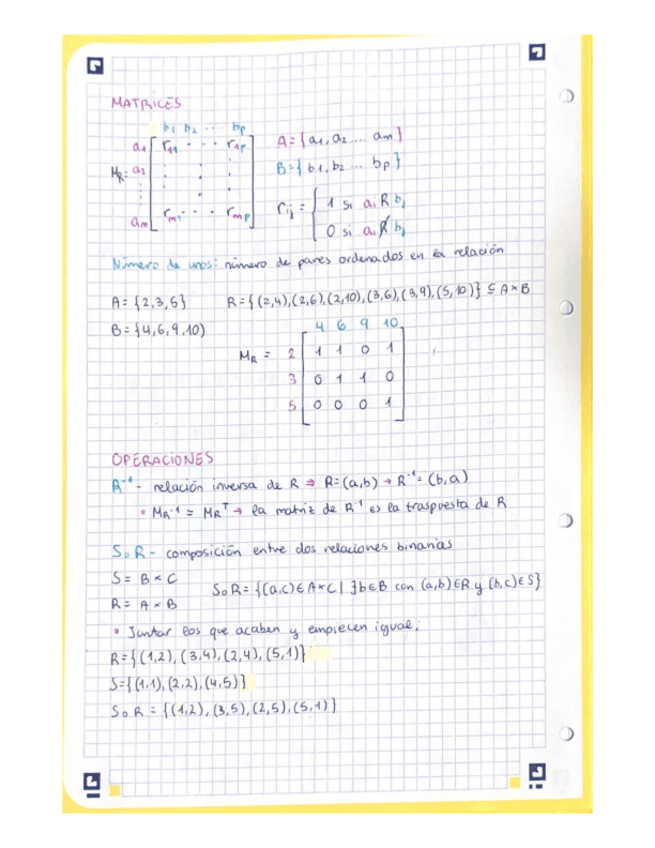 MATRICES
b1 b2 ... bp
a1 r11 · · · r1p
A = {a1, a2 .... am}
MR: a2
B = {b1, b2 ... bp}
rij = { 1 si ai R bj
am rm1 · · · rmp
0 si ai R̸ bj
Número de unos: número de pares ordenados en la relación
A = {2,3,5} R = {(2,4),(2,6),(2,10),(3,6),(3,9),(5,10)} ⊆ A×B
B = {4,6,9,10)
4 6 9 10
MR = 2 1 1 0 1
3 0 1 1 0
5 0 0 0 1
OPERACIONES
R⁻¹ - relación inversa de R ⇒ R = (a,b) → R⁻¹ = (b,a)
• MR⁻¹ = MRᵀ → la matriz de R⁻¹ es la traspuesta de R
S∘R - composición entre dos relaciones binarias
S = B × C
S∘R = {(a,c) ∈ A×C | ∃b∈B con (a,b)∈R y (b,c)∈S}
R = A × B
• Juntar los que acaben y empiecen igual:
R = {(1,2), (3,4), (2,4), (5,1)}
S = {(1,1), (2,2), (4,5)}
S∘R = {(1,2), (3,5), (2,5), (5,1)}